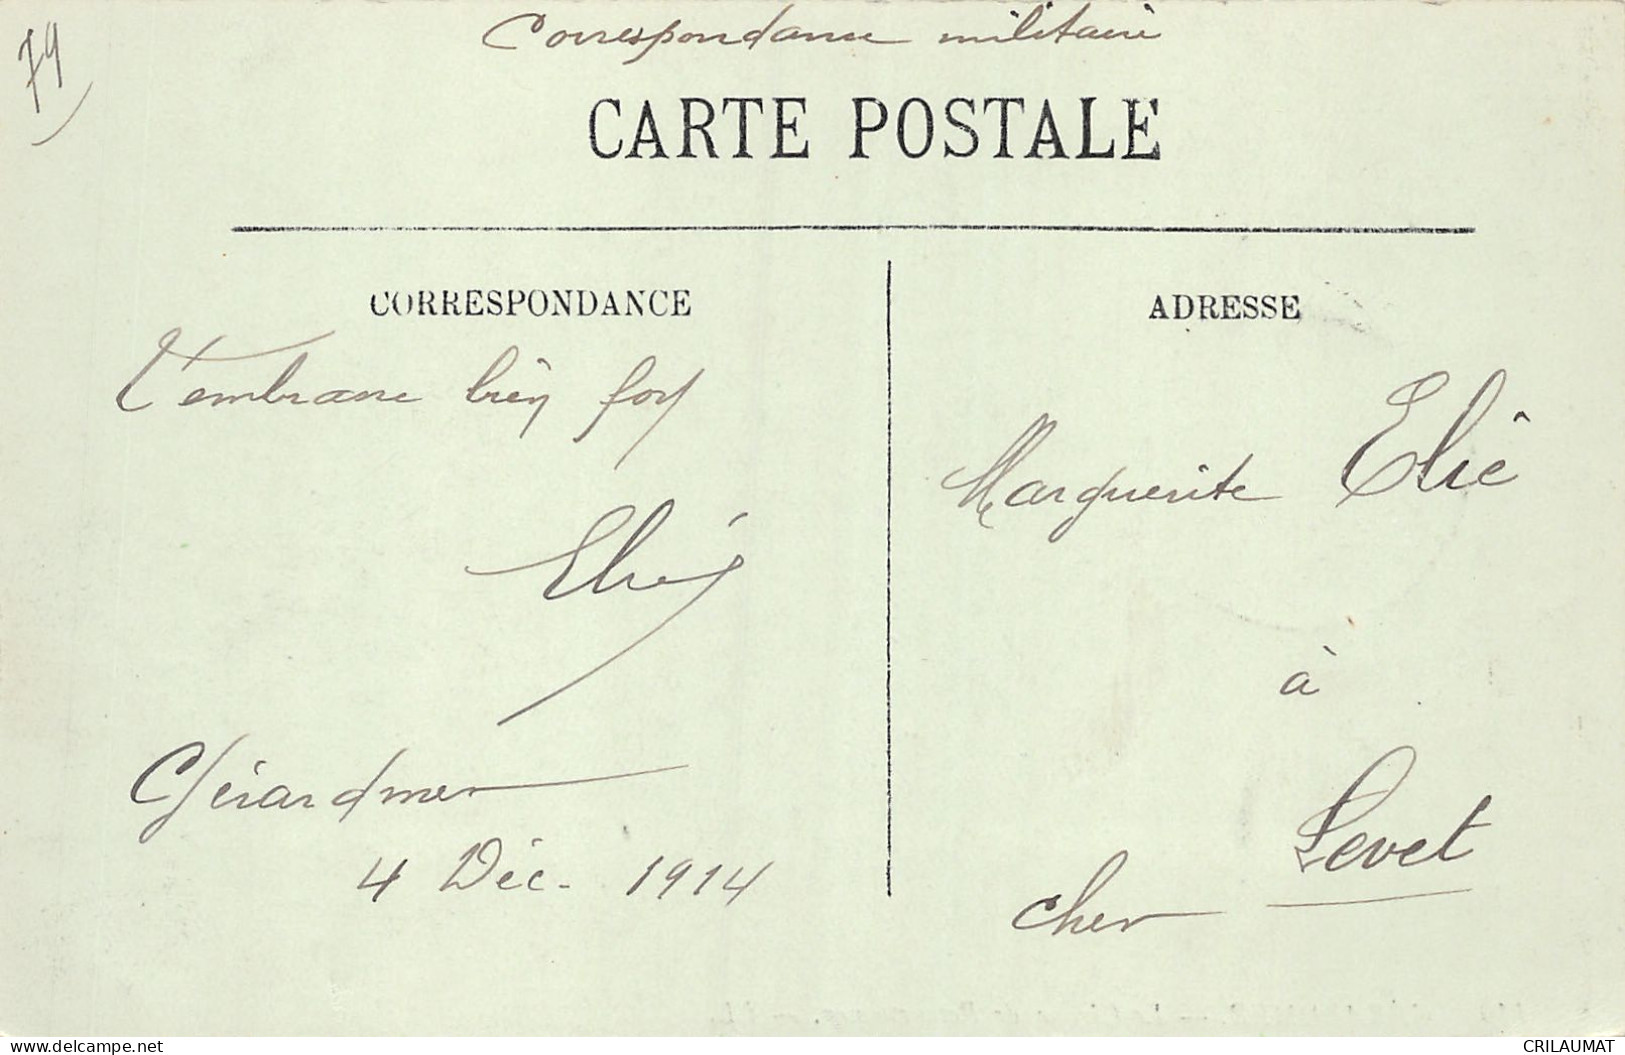 79
Correspondance militaire
CARTE POSTALE
CORRESPONDANCE
T'embrasse bien fort
Elie
Gérardmer
4 Déc. 1914
ADRESSE
Marguerite Elie
à
Levet
Cher
CRILAUMAT